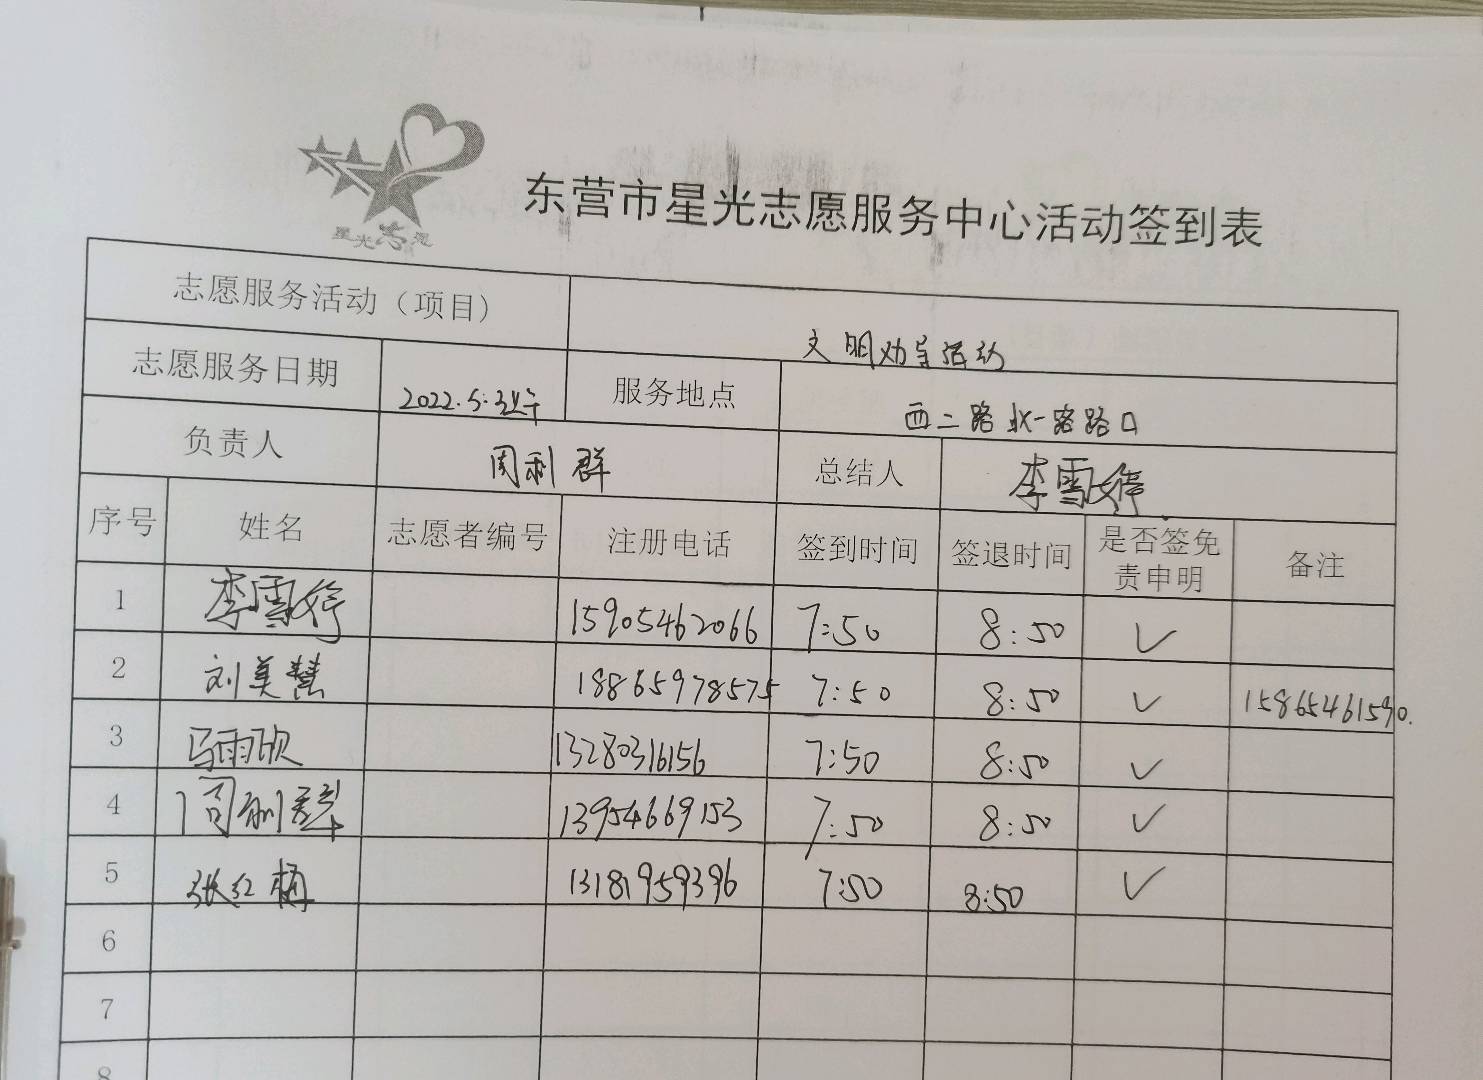 星光志愿
东营市星光志愿服务中心活动签到表
志愿服务活动（项目） 文明劝导活动
志愿服务日期 2022.5.3上午 服务地点 西二路北一路路口
负责人 周利群 总结人 李雪婷
序号 姓名 志愿者编号 注册电话 签到时间 签退时间 是否签免责申明 备注
1 李雪婷 15905462066 7:50 8:50 ✓
2 刘美慧 18865978575 7:50 8:50 ✓ 15865461590.
3 马雨欣 13280316156 7:50 8:50 ✓
4 周利群 13954669153 7:50 8:50 ✓
5 张红梅 13181959396 7:50 8:50 ✓
6
7
8